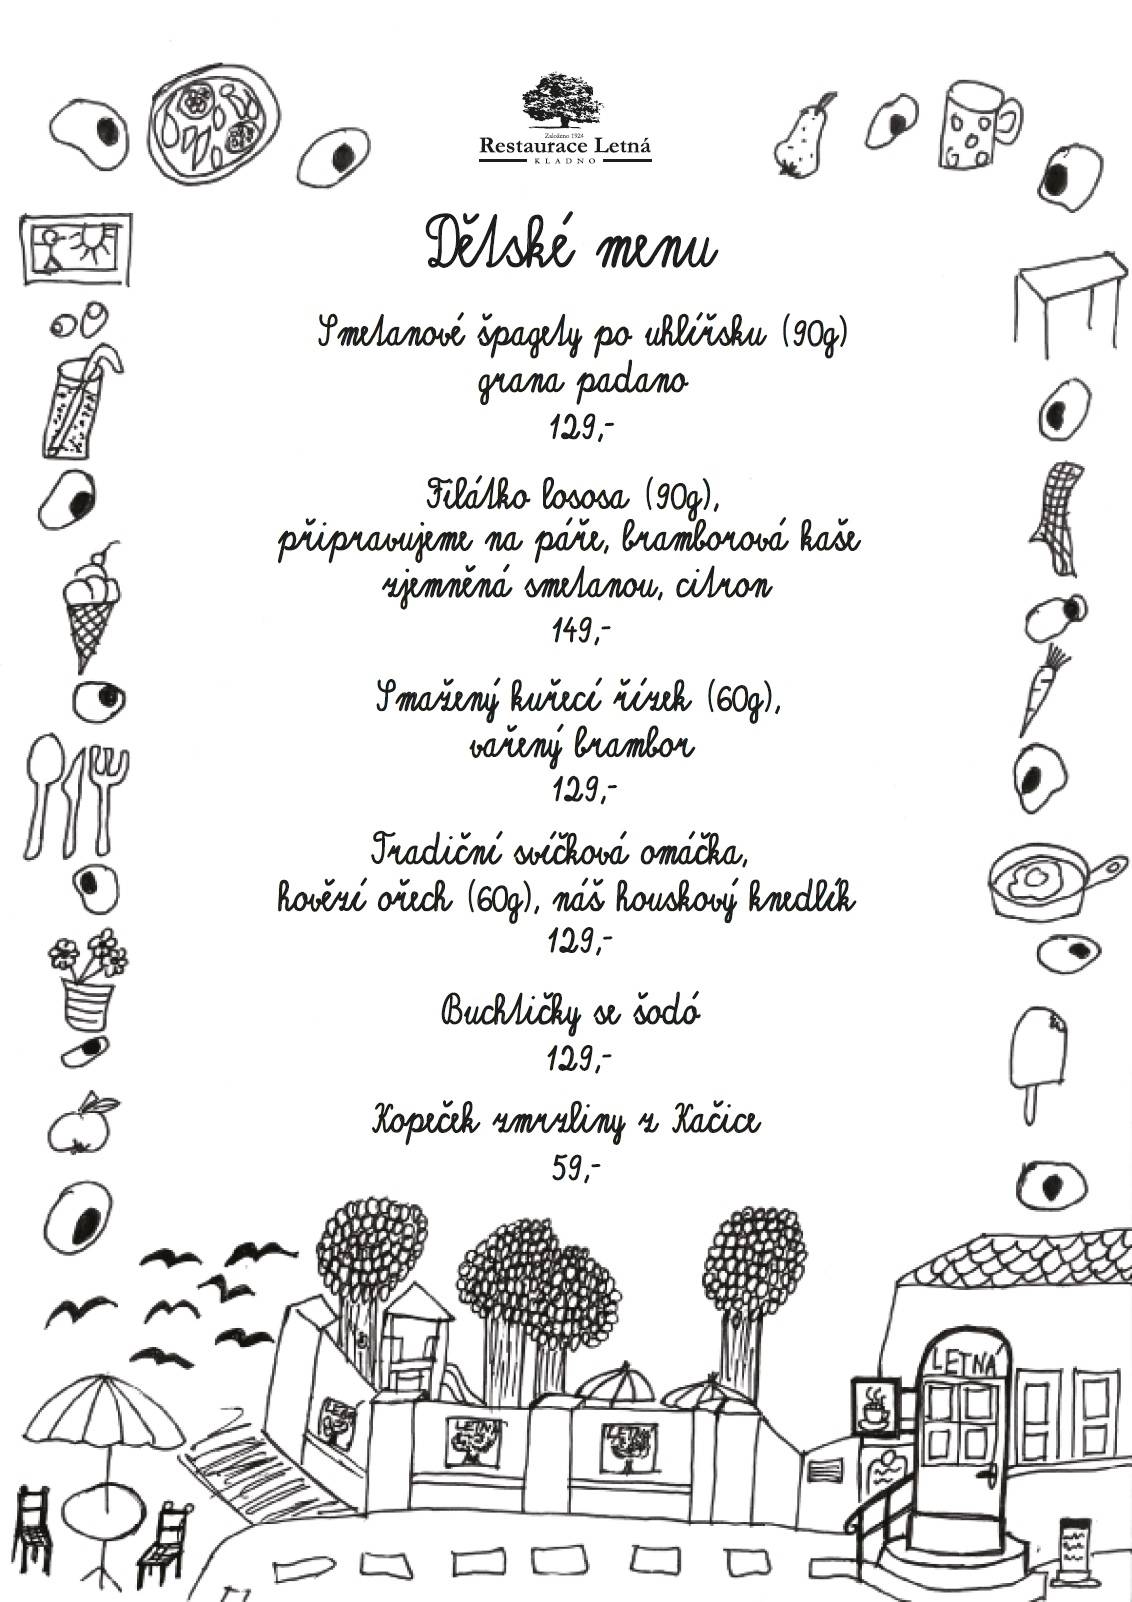 Založeno 1924
Restaurace Letná
KLADNO
Dětské menu
Smetanové špagety po uhlířsku (90g)
grana padano
129,-
Filátko lososa (90g),
připravujeme na páře, bramborová kaše
zjemněná smetanou, citron
149,-
Smažený kuřecí řízek (60g),
vařený brambor
129,-
Tradiční svíčková omáčka,
hovězí ořech (60g), náš houskový knedlík
129,-
Buchtičky se šodó
129,-
Kopeček zmrzliny z Kačice
59,-
LETNÁ
LETNÁ
LETNÁ